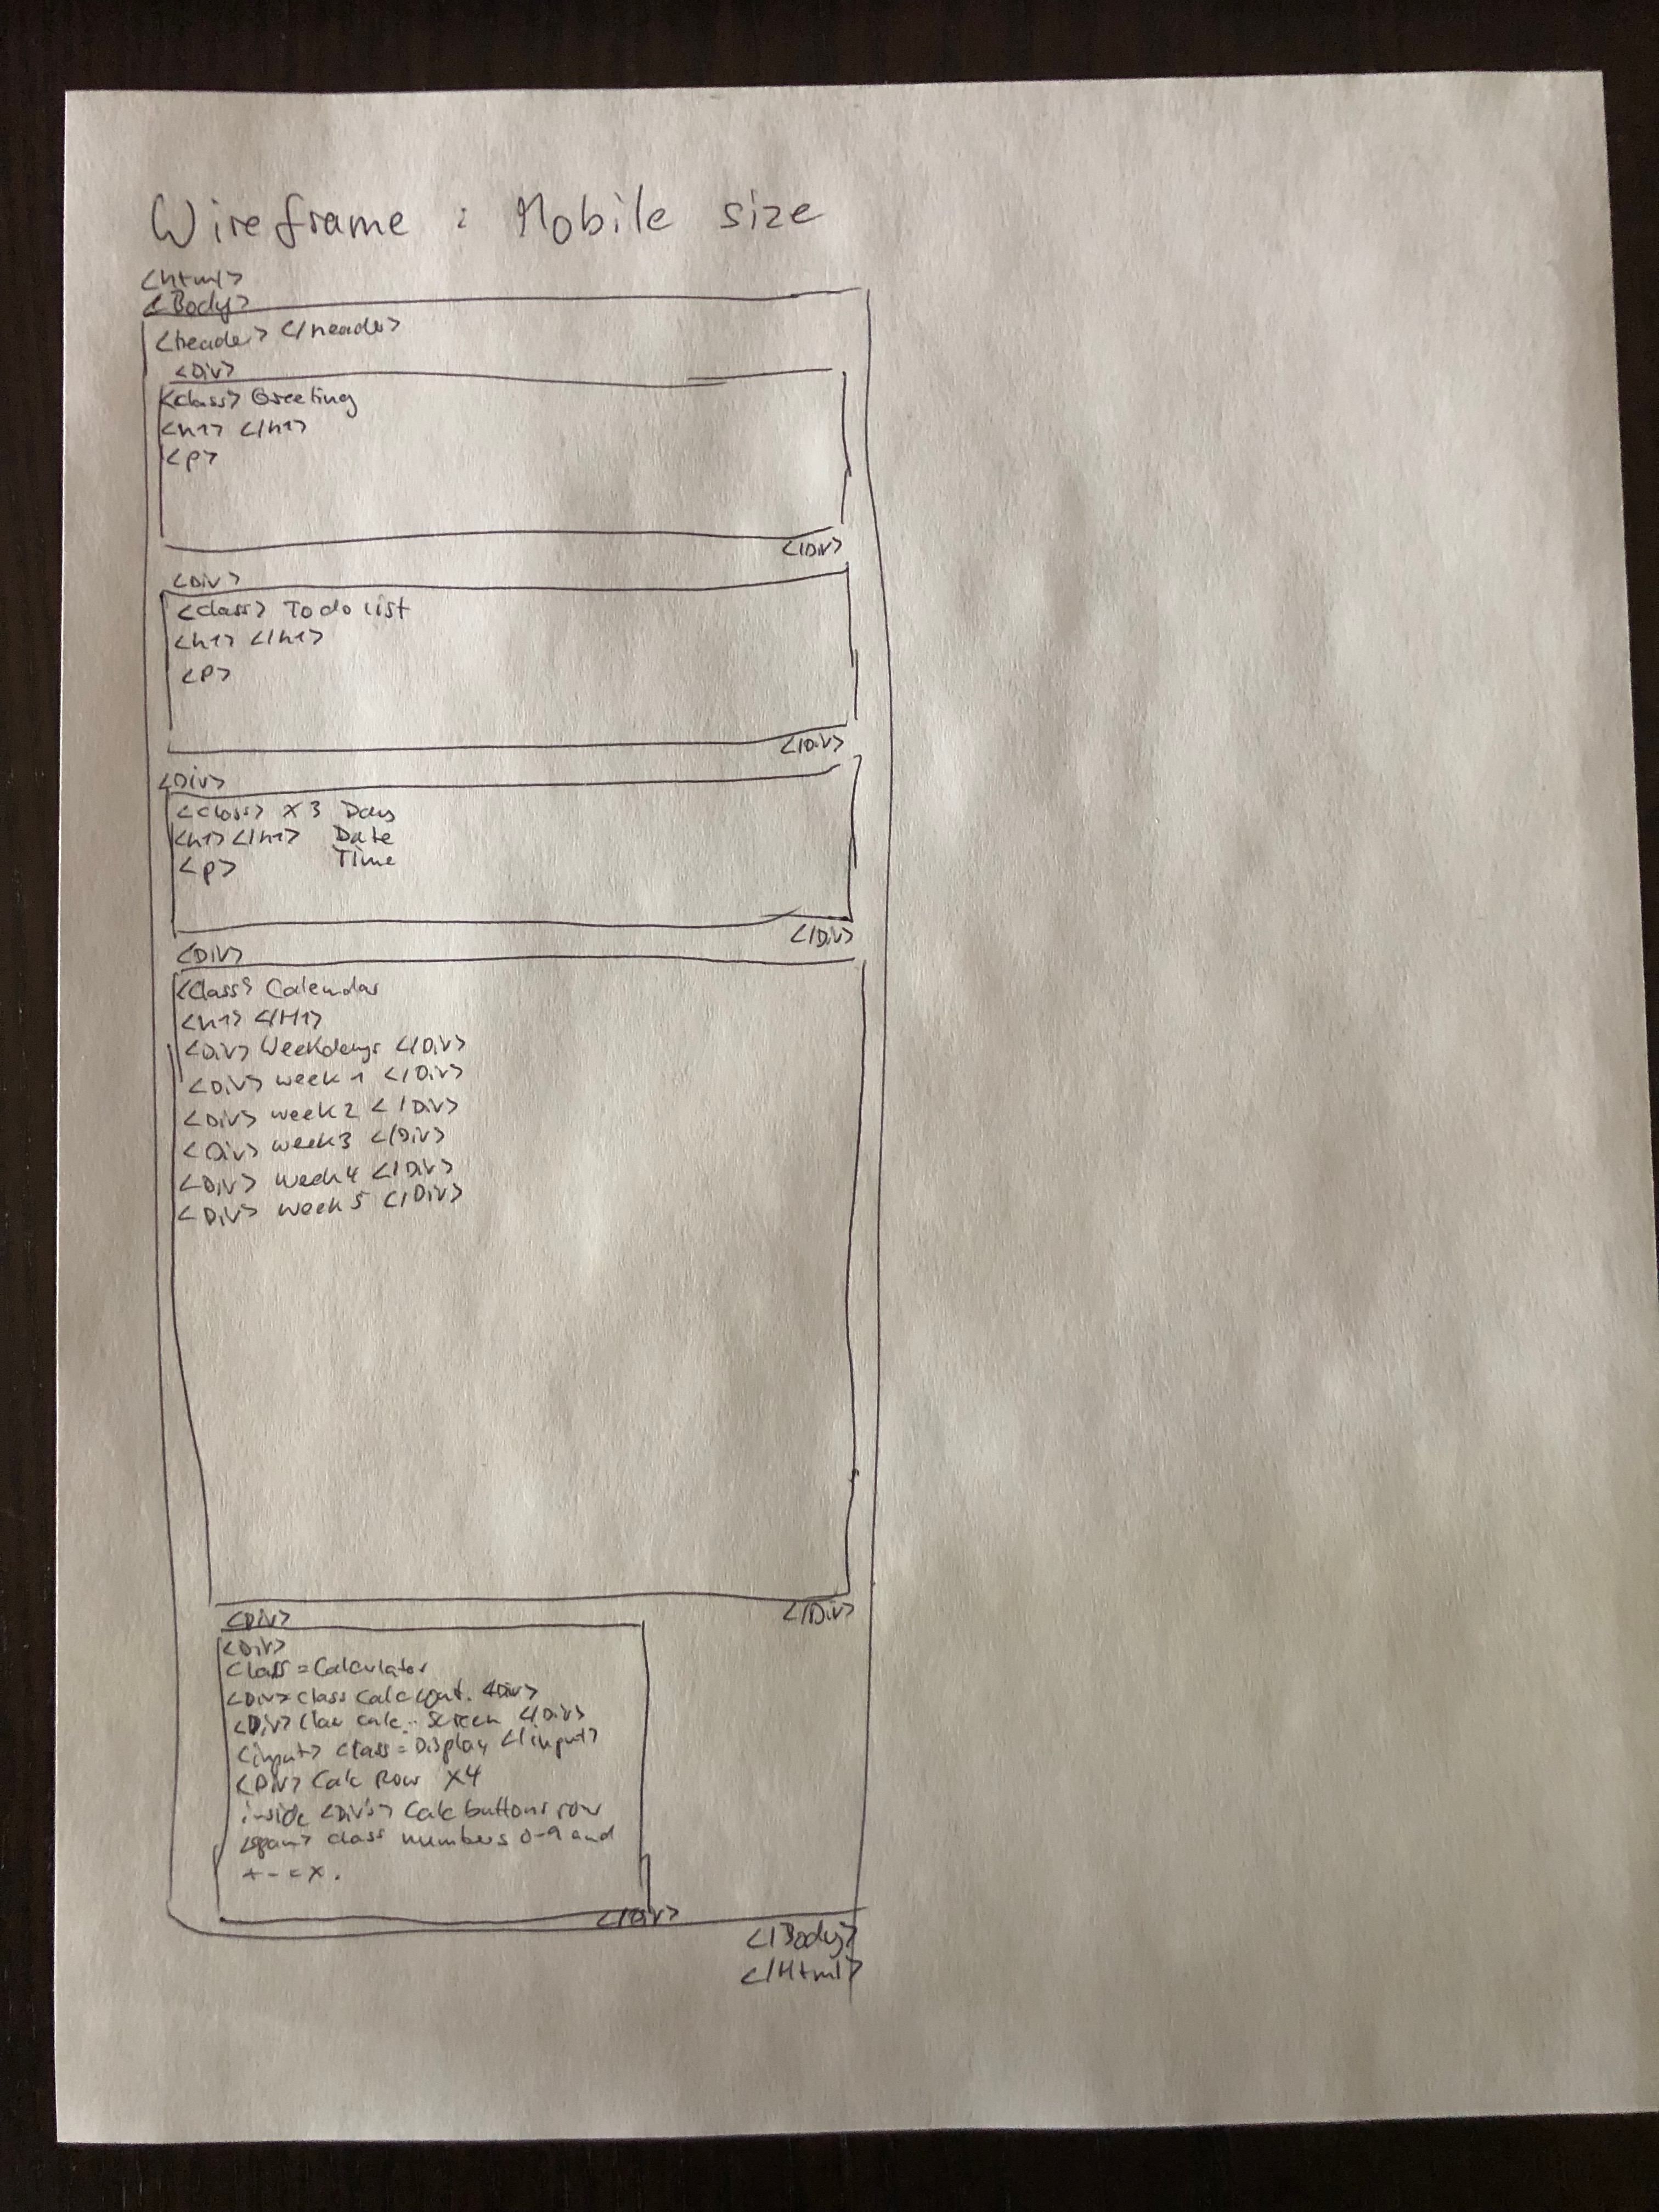 Wireframe : Mobile size
<html>
<Body>
<header> </header>
<Div>
<class> Greeting
<h1> </h1>
<p>
</Div>
<Div>
<class> To do list
<h1> </h1>
<P>
</Div>
<Div>
<class> x 3 Day
<h1> </h1> Date
<p> Time
</Div>
<Div>
<Class> Calendar
<h1> </H1>
<Div> Weekdays </Div>
<Div> week 1 </Div>
<Div> week 2 </Div>
<Div> week 3 </Div>
<Div> week 4 </Div>
<Div> week 5 </Div>
</Div>
<Div>
<Div>
Class = Calculator
<Div> class calc cont. <Div>
<Div> calc - screen </Div>
<input> class = Display </input>
<Div> Calc Row x4
inside <Div's> Calc buttons row
<span> class numbers 0-9 and
+ - = x .
</Div>
</Body>
</Html>